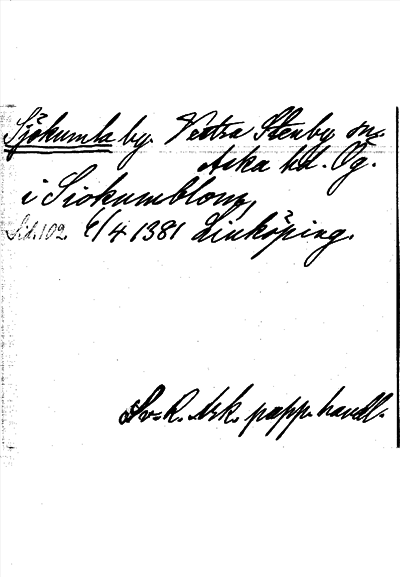 Sjökumla by. Västra Stenby sn.
Aska hd. Ög.
i Siokumblom
Sid. 102. 6/4 1381 Linköping.
Sv. R. Ark. papp. handl.